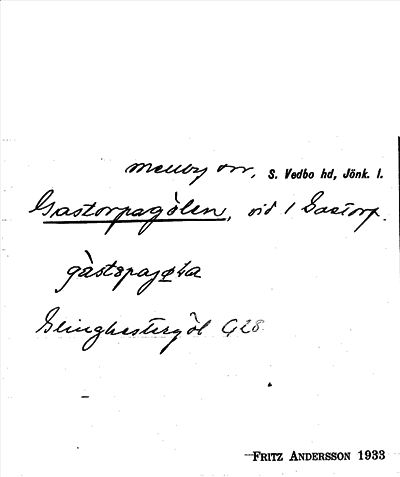 Mellby sn, S. Vedbo hd, Jönk. l.
Gastorpagölen, vid 1 Gastorp.
gàstɷpajøɫa
Slinghestergöl G28
FRITZ ANDERSSON 1933